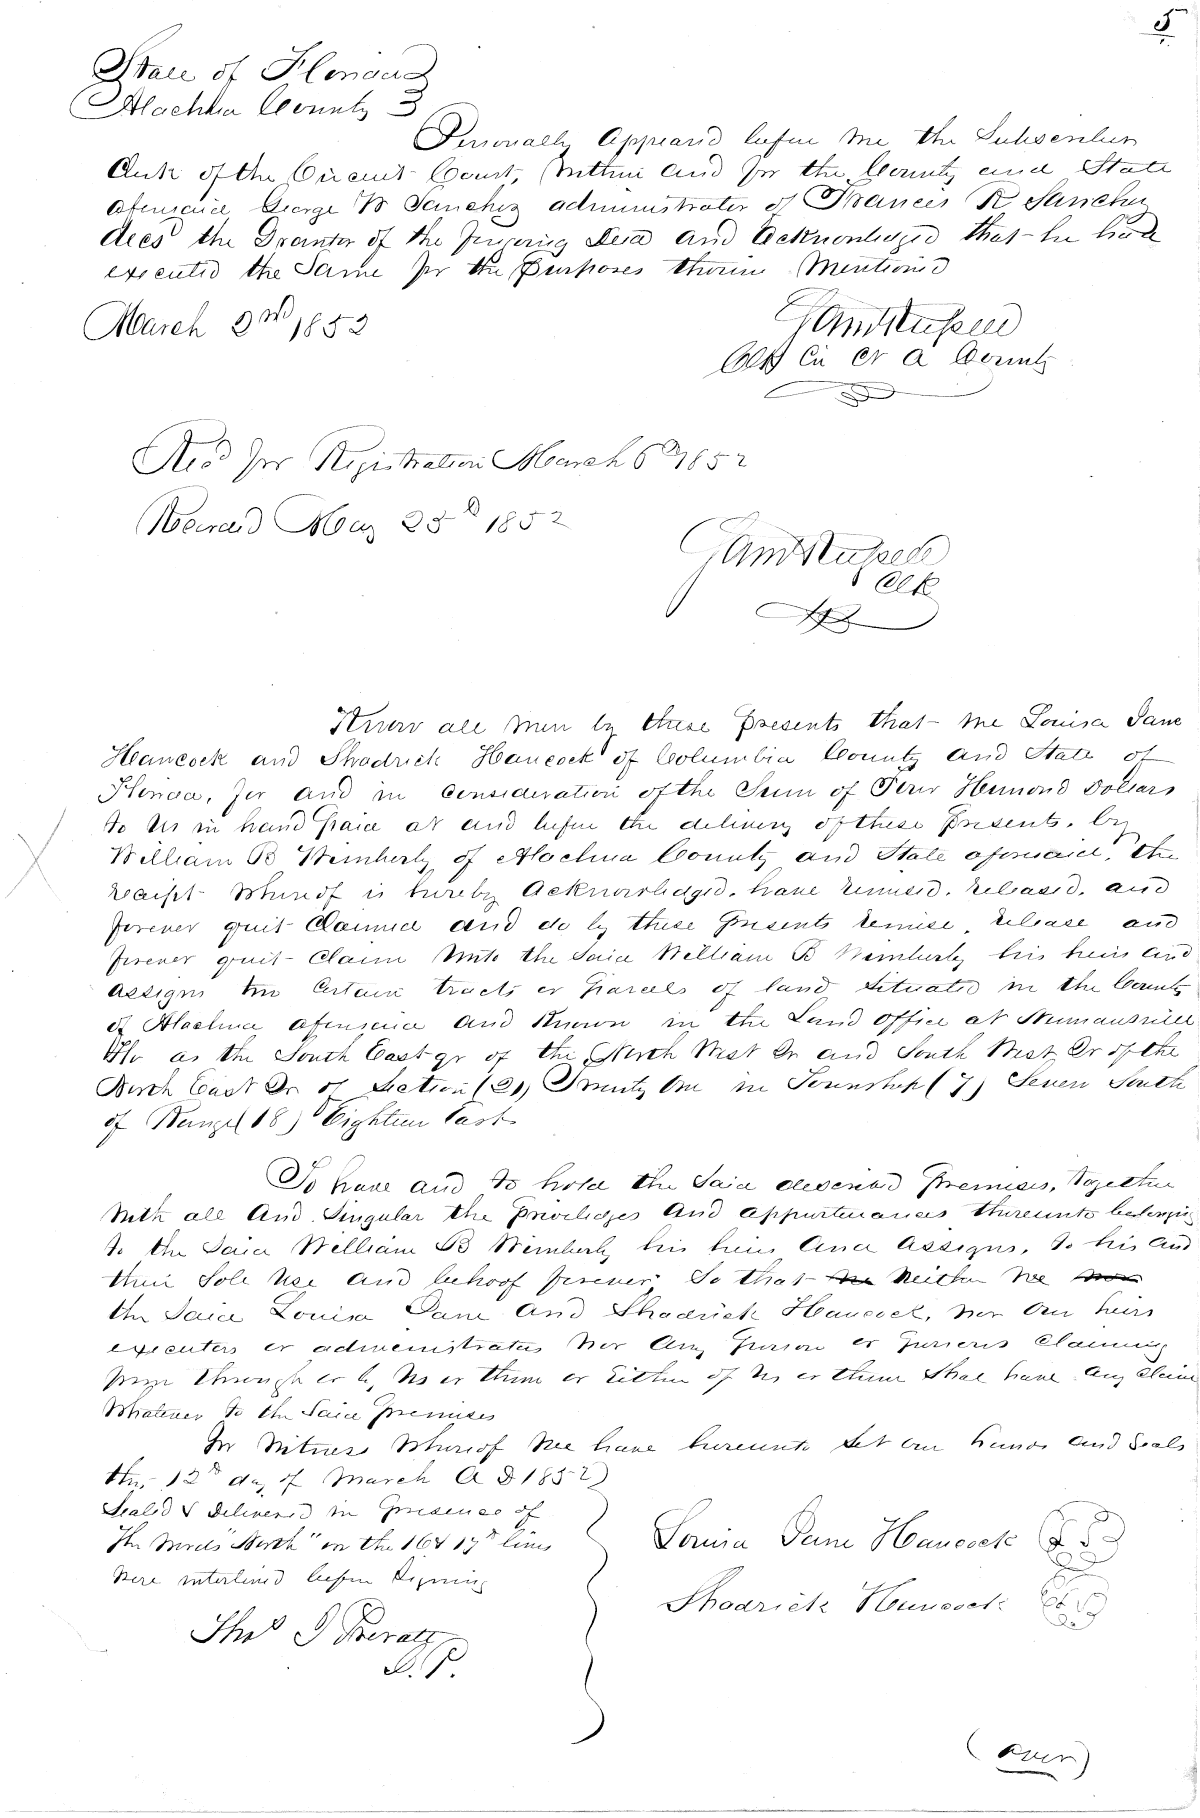 5
State of Florida
Alachua County
Personally Appeard before me the Subscriber
Clerk of the Circuit Court, Within and for the County and State
aforesaid George W Sanchez administrator of Francis R Sanchez
decsd the Grantor of the forgoing Deed and Acknowledged that he had
executed the Same for the Purposes therein Mentioned
March 2nd 1852
Saml Russell
Clk Cir Ct A County
Recd for Registration March 6th 1852
Record May 25th 1852
Saml Russell
Clk
Know all men by these presents that we Louisa Jane
Hancock and Shadrick Hancock of Columbia County and State of
Florida, for and in consideration of the Sum of Four Hunond Dollars
to us in hand paid at and before the delivery of these presents. by
William B Wimberly of Alachua County and State aforesaid, the
receipt Whereof is hereby Acknowledged. have remised. released. and
forever quit Claimed and do by these presents remise release and
forever quit Claim Unto the said William B Wimberly his heirs and
assigns two Certain tracts or parcels of land Situated in the County
of Alachua aforesaid and Known in the Land office at Newnansville
Flo as the South East qr of the North West Qr and South West Qr of the
North East Qr of Section (21) Twenty One in Township (7) Seven South
of Range (18) Eighteen East
To have and to hold the Said described premises, together
With all And Singular the priviledges And appurtenances thereunto belonging
to the Said William B Wimberly his heirs And assigns, to his and
their Sole Use and behoof forever. So that we Neither We nor
the Said Louisa Jane and Shadrick Hancock, nor Our heirs
executors or administrators Nor Any person or persons Claiming
from through or by Us or them or Either of Us or them Shal have Any Claim
Whatever to the Said premises
In Witness Whereof We have hereunto Set our hands and Seals
this 12th day of March A D 1852
Sealed & Delivered in presence of
The Words "North" on the 16 & 17th lines
Were interlined before Signing
Louisa Jane Hancock
Shadrick Hancock
Thos J Prevatt
J. P.
(over)